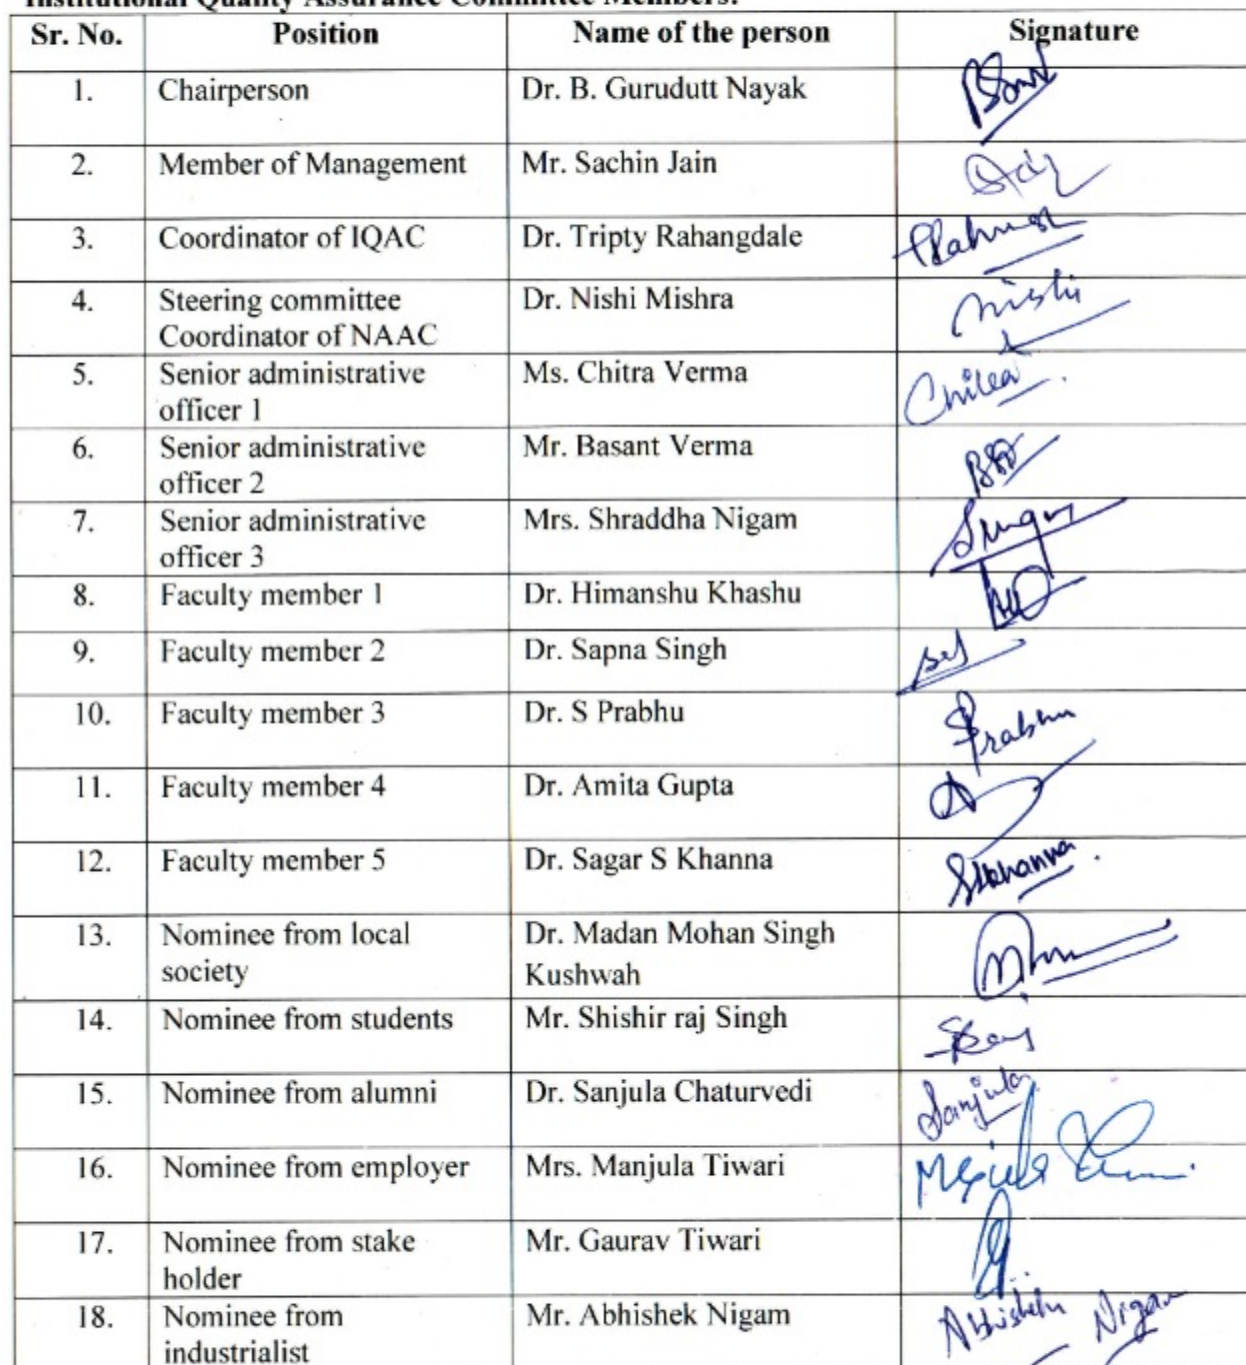 Institutional Quality Assurance Committee Members:
Sr. No. Position Name of the person Signature
1. Chairperson Dr. B. Gurudutt Nayak
2. Member of Management Mr. Sachin Jain
3. Coordinator of IQAC Dr. Tripty Rahangdale
4. Steering committee Dr. Nishi Mishra Nishi
Coordinator of NAAC
5. Senior administrative Ms. Chitra Verma
officer 1
6. Senior administrative Mr. Basant Verma
officer 2
7. Senior administrative Mrs. Shraddha Nigam
officer 3
8. Faculty member 1 Dr. Himanshu Khashu
9. Faculty member 2 Dr. Sapna Singh
10. Faculty member 3 Dr. S Prabhu SPrabhu
11. Faculty member 4 Dr. Amita Gupta
12. Faculty member 5 Dr. Sagar S Khanna SKhanna
13. Nominee from local Dr. Madan Mohan Singh
society Kushwah
14. Nominee from students Mr. Shishir raj Singh
15. Nominee from alumni Dr. Sanjula Chaturvedi Sanjula
16. Nominee from employer Mrs. Manjula Tiwari
17. Nominee from stake Mr. Gaurav Tiwari
holder
18. Nominee from Mr. Abhishek Nigam Abhishek Nigam
industrialist